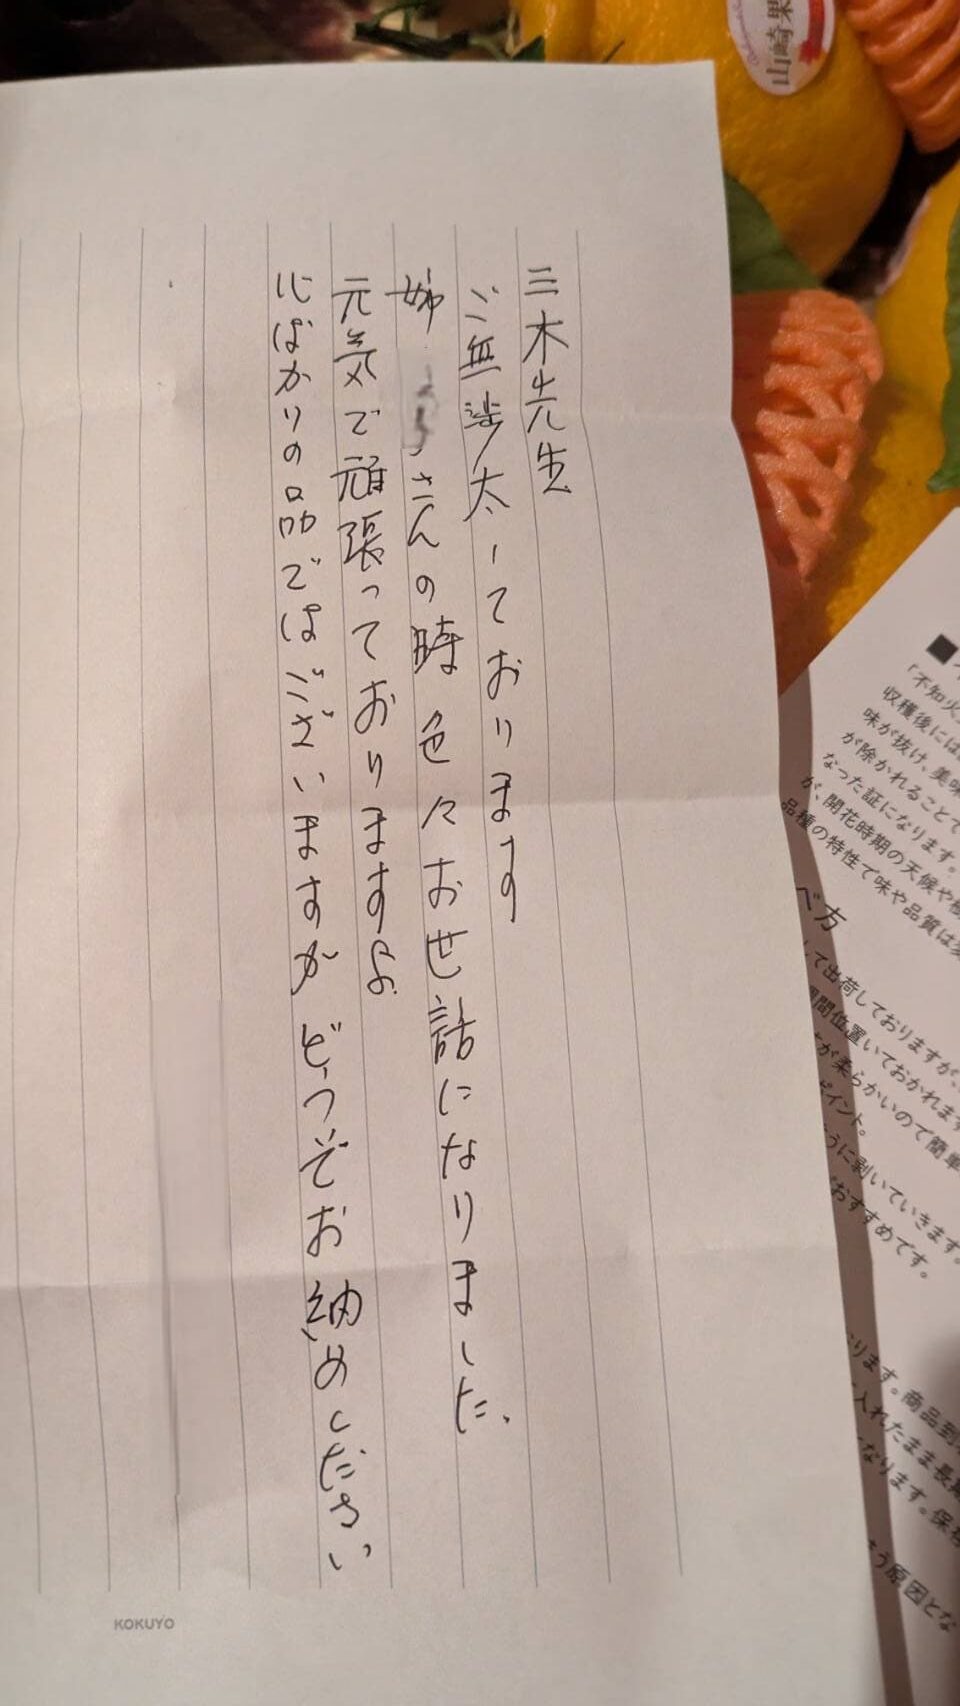 三木先生
ご無沙太しております
姉 さんの時 色々お世話になりました、
元気で頑張っておりますよ
心ばかりの品ではございますが どうぞお納めください
KOKUYO
山崎果
「不知火
収穫後には
味が抜け、美味
が除かれることで
なった証になります。
が、開花時期の天候や
品種の特性で味や品質は変
べ方
して出荷しておりますが、
間位置いておかれます
が柔らかいので簡単
ポイント。
うに剥いていきます。
おすすめです。
ります。商品到
入れたまま長期
なります。保存
う原因とな